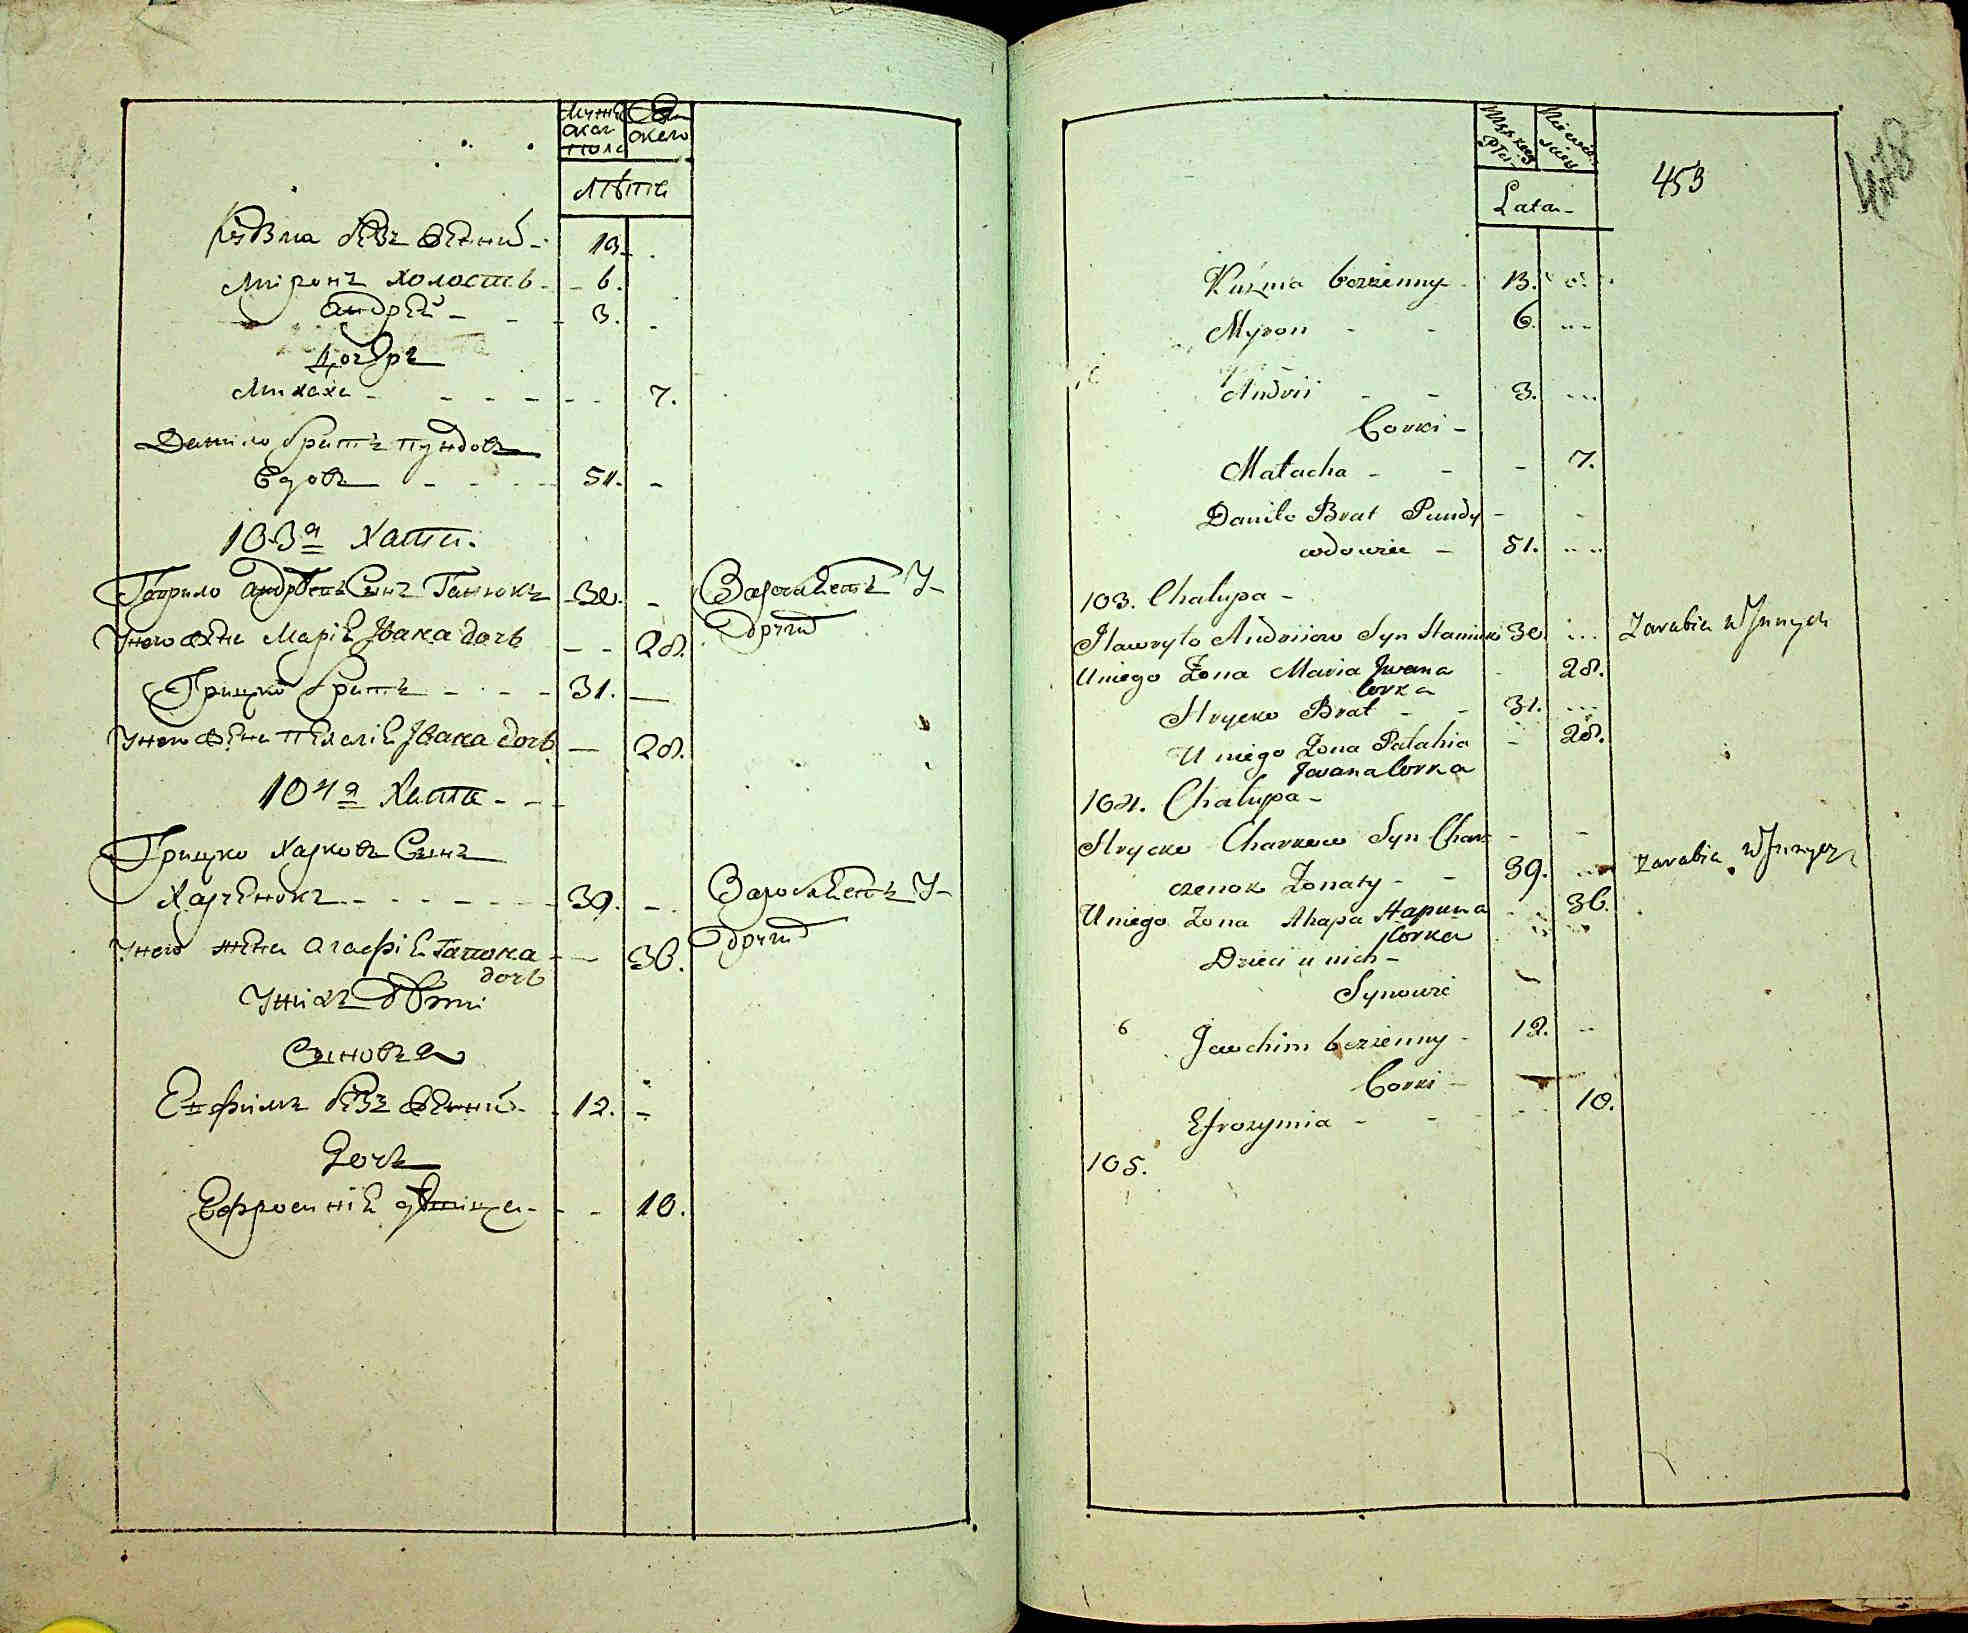 Мужескаго пола
Женскаго
лѣта
Кузма безженный 13.
Миронъ холостъ 6.
Андрей 3.
Дочеръ
Малаха 7.
Данило братъ пундовъ
вдовъ 51.
103я Хата.
Гаврило Андрѣевъ Сынъ Ганюкъ 30. Заробляетъ У
У него жена Марія Івана дочь 28. Другихъ
Грицко братъ 31.
У него жена пелагія Івана дочь 28.
104я Хата
Грицко Харковъ Сынъ
Харченокъ 39. Заробляетъ У
У него жена Агафія Гапона 36. Другихъ
дочь
У нихъ дѣти
Сыновья
Евфимъ безженный 12.
Дочь
Ефросинія дѣвица 10.
Męzkiey Płci
Niewieściey
Lata
453
478
Kuźma bezżenny 13.
Myron 6.
Andrii 3.
Corki
Małacha 7.
Daniło Brat Pundy
wdowiec 51.
103. Chałupa
Hawryło Andriiow Syn Haniuk 30. Zarabia u Innych
U niego Żona Maria Jwana 28.
Corka
Hrycko Brat 31.
U niego Żona Pałahia 28.
Jwana Corka
104. Chałupa
Hrycko Charkow Syn Char
czenok Żonaty 39. Zarabia u Innych
U niego Żona Ahapa Hapuna 36.
Corka
Dzieci u nich
Synowie
6 Jawchim bezżenny 12.
Corki
Efrozymia 10.
105.